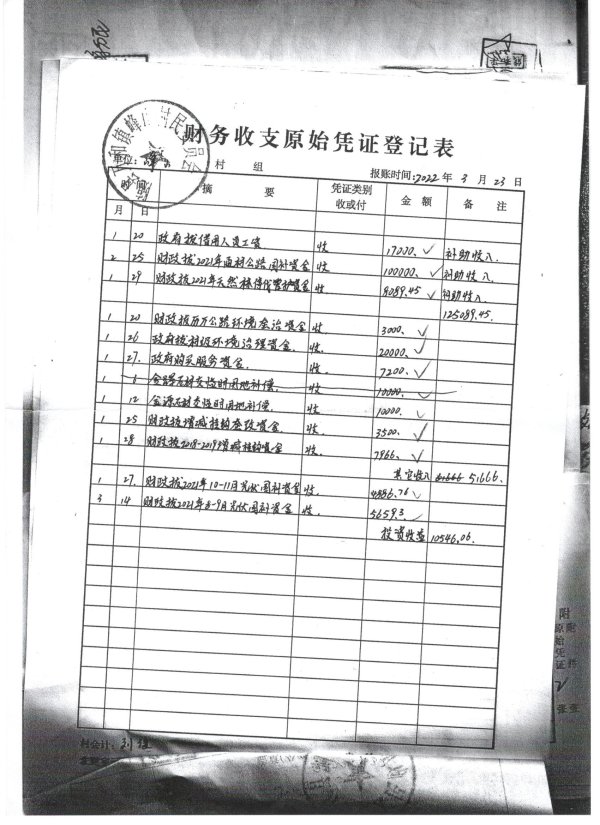 财务收支原始凭证登记表
村 组
报账时间:2022年3月23日
时间 摘要 凭证类别收或付 金额 备注
月 日
1 20 政府拨借用人员工资 收 17000、 补助收入
2 25 财政拨2021年通村公路国补资金 收 100000、 补助收入
1 29 财政拨2021年天然林停伐管护资金 收 8089.45 补助收入
125089.45
1 20 财政拨历万公路环境整治资金 收 3000、
1 26 政府拨村级环境治理资金 收、 20000、
1 27 政府购买服务资金 收、 7200、
1 6 金源石材交临时用地补偿 10000、
1 12 金源石材交临时用地补偿、 收 10000、
1 25 财政拨增减挂钩奎政资金 收 3500、
1 28 财政拨2018-2019增减挂钩资金 收、 7966、
其它收入 51666、
1 27 财政拨2021年10-11月光伏国补资金 收、 4886.76
3 14 财政拨2021年8-9月光伏国补资金 收 5659.3
投资收益 10546.06
村会计:
附
原始凭证
附件
张